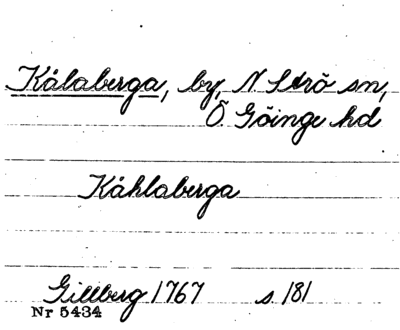 Kålaberga, by, N Strö sn,
Ö Göinge hd
Kåhlaberga
Gillberg 1767 s 181
Nr 5434